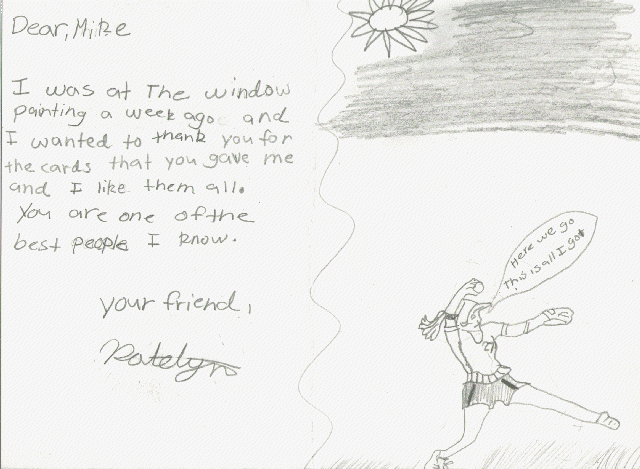 Dear, Mike
I was at The window
painting a week ago and
I wanted to thank you for
the cards that you gave me
and I like them all.
You are one of the
best people I know.
your friend,
Katelyn
Here we go
This is all I got